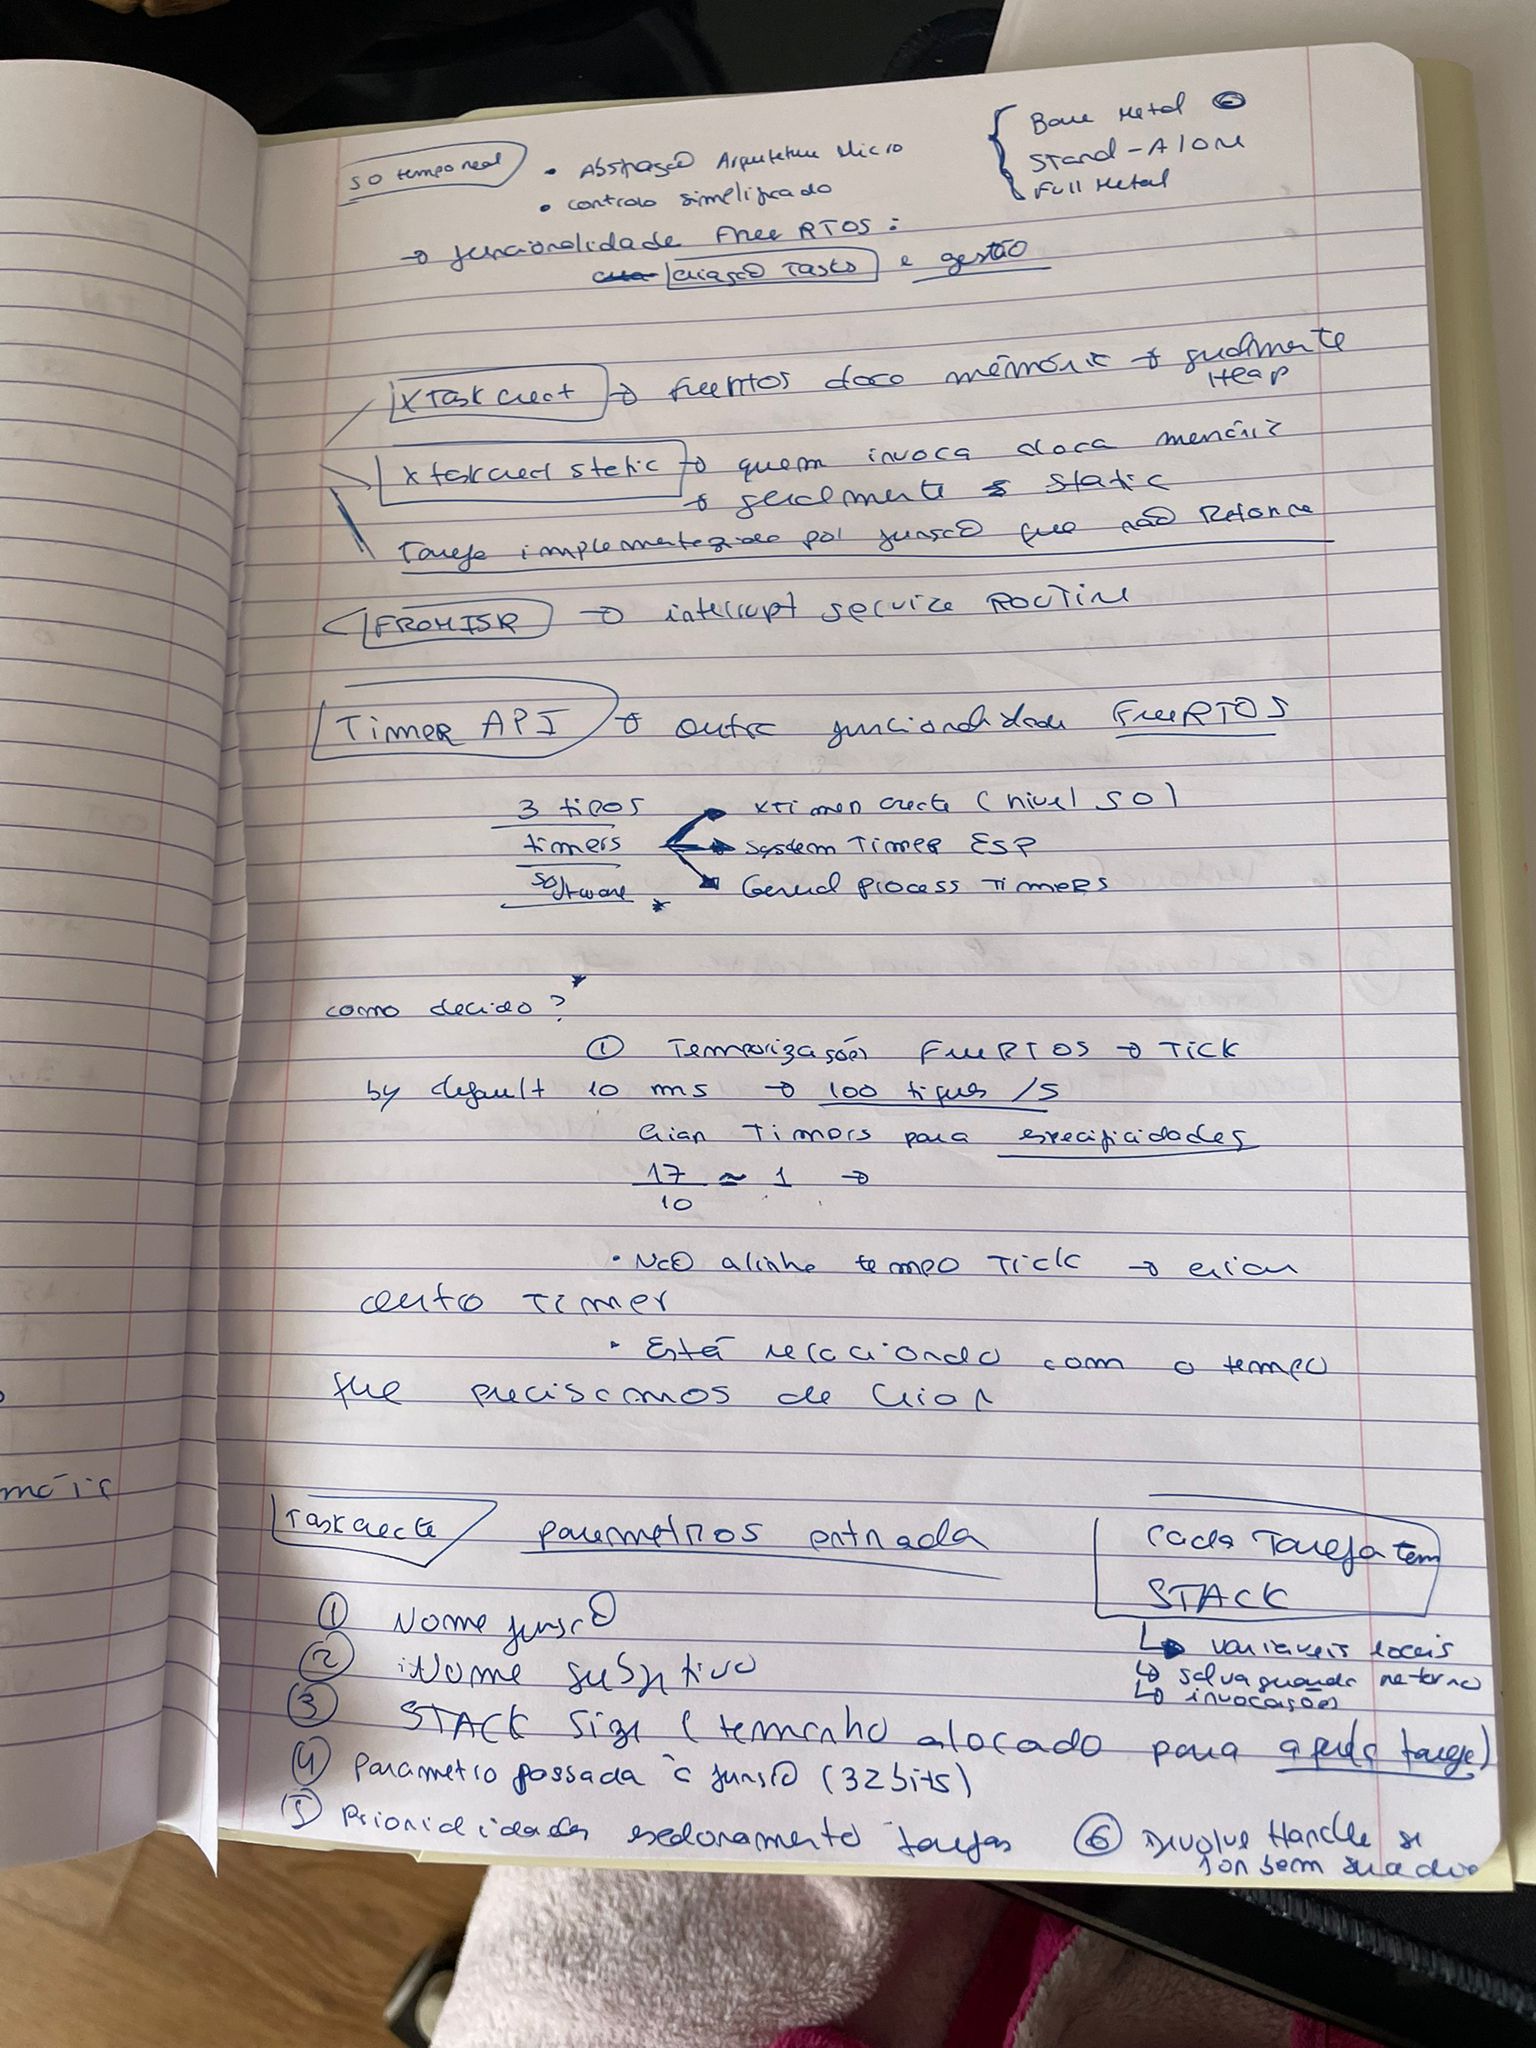 SO tempo real
• Abstração Arquitetura Micro
• controlo simplificado
Bare Metal
Stand-Alone
Full Metal
→ funcionalidade FreeRTOS:
criação Tasks e gestão
xTaskcreat → FreeRTOS aloca memória → geralmente
Heap
xtaskcreat static → quem invoca aloca memória
→ geralmente static
Tarefa implementada por função que não Retorna
FROMISR → interrupt service ROUTINE
Timer API → outra funcionalidade FreeRTOS
3 tipos
timers
software *
xtimer create (nivel SO)
System Timer ESP
General process timers
como decido? *
① Temporizações FreeRTOS → Tick
by default 10 ms → 100 tiques /s
Criar Timers para especificidades
17
10
≈ 1 →
• Não alinha tempo Tick → criar
outro timer
• Está relacionado com o tempo
que precisamos de criar
Taskcreate parametros entrada
cada Tarefa tem
STACK
① Nome função
② Nome
③ STACK size (tamanho alocado para aquela tarefa)
④ parametro passada à função (32bits)
⑤ Prioridades tarefas
⑥ Devolve Handle se
for bem
variaveis locais
salvaguarda retorno
invocações